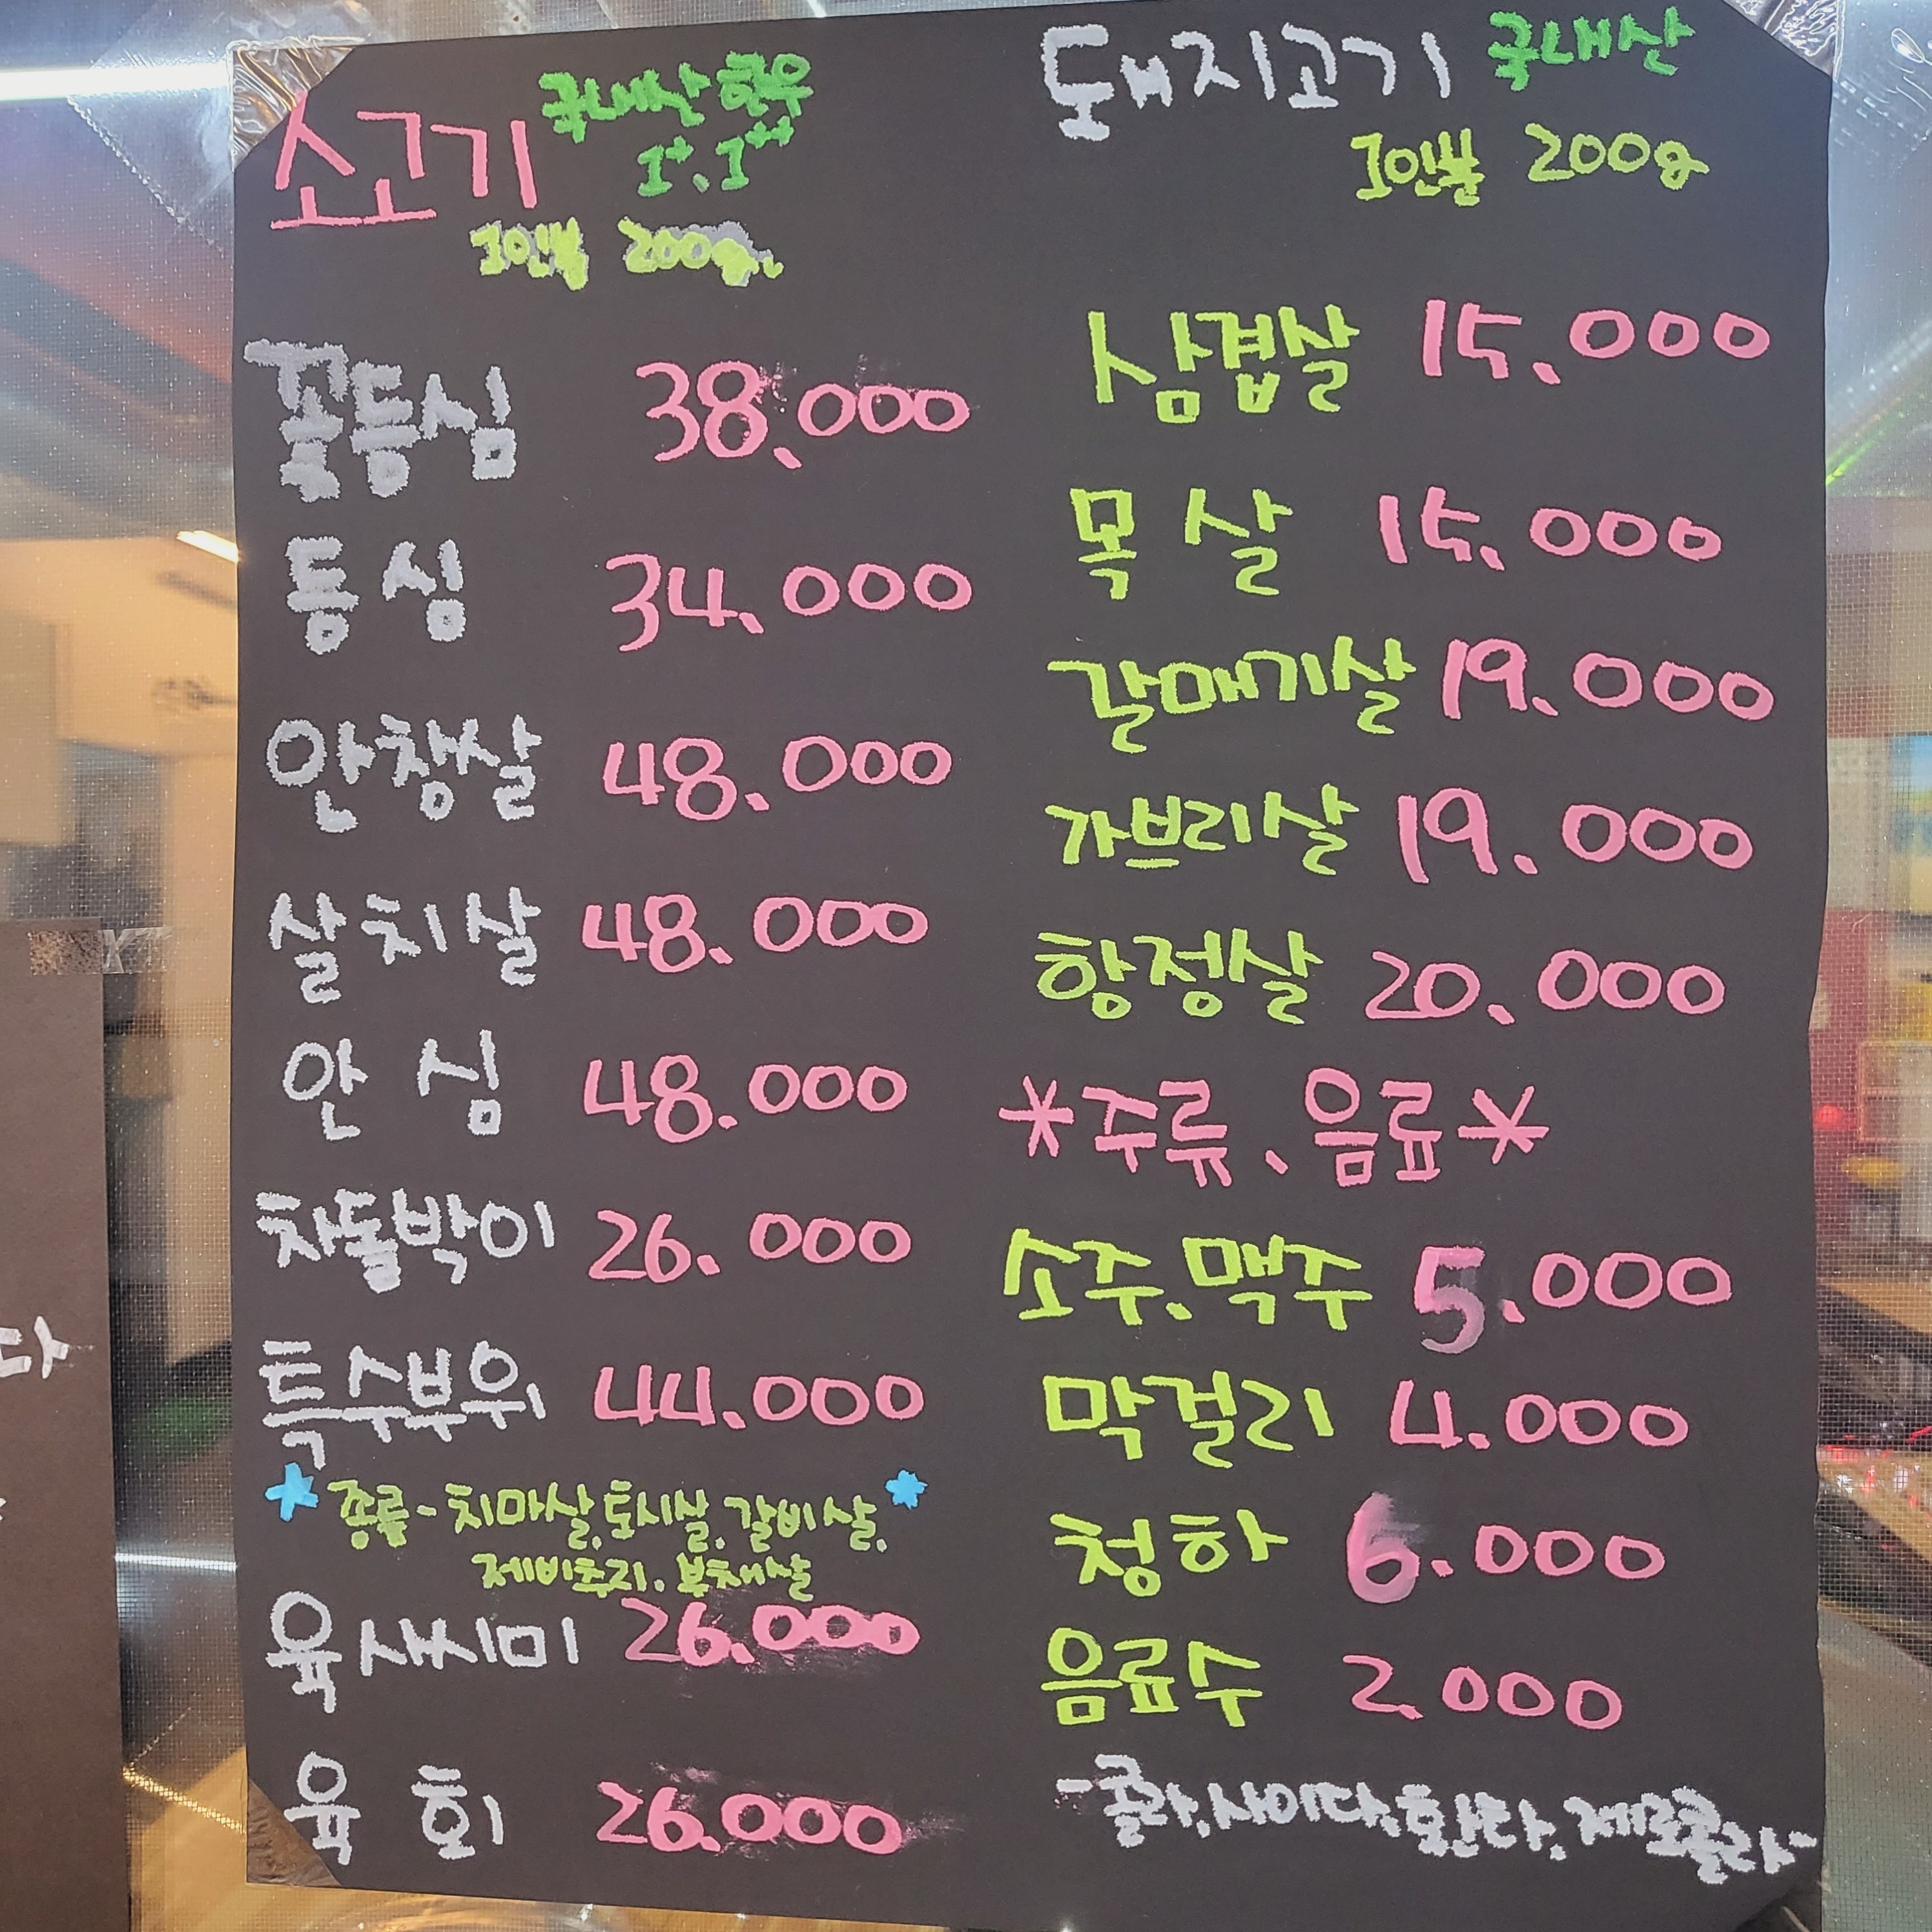 소고기 국내산 한우
1+.1++
1인분 200g
꽃등심 38.000
등심 34.000
안창살 48.000
살치살 48.000
안심 48.000
차돌박이 26.000
특수부위 44.000
*종류-치마살.토시살.갈비살.*
제비추리.부채살
육사시미 26.000
육회 26.000
돼지고기 국내산
1인분 200g
삼겹살 15.000
목살 15.000
갈매기살 19.000
가브리살 19.000
항정살 20.000
*주류.음료*
소주.맥주 5.000
막걸리 4.000
청하 6.000
음료수 2.000
-콜라,사이다,환타,제로콜라-